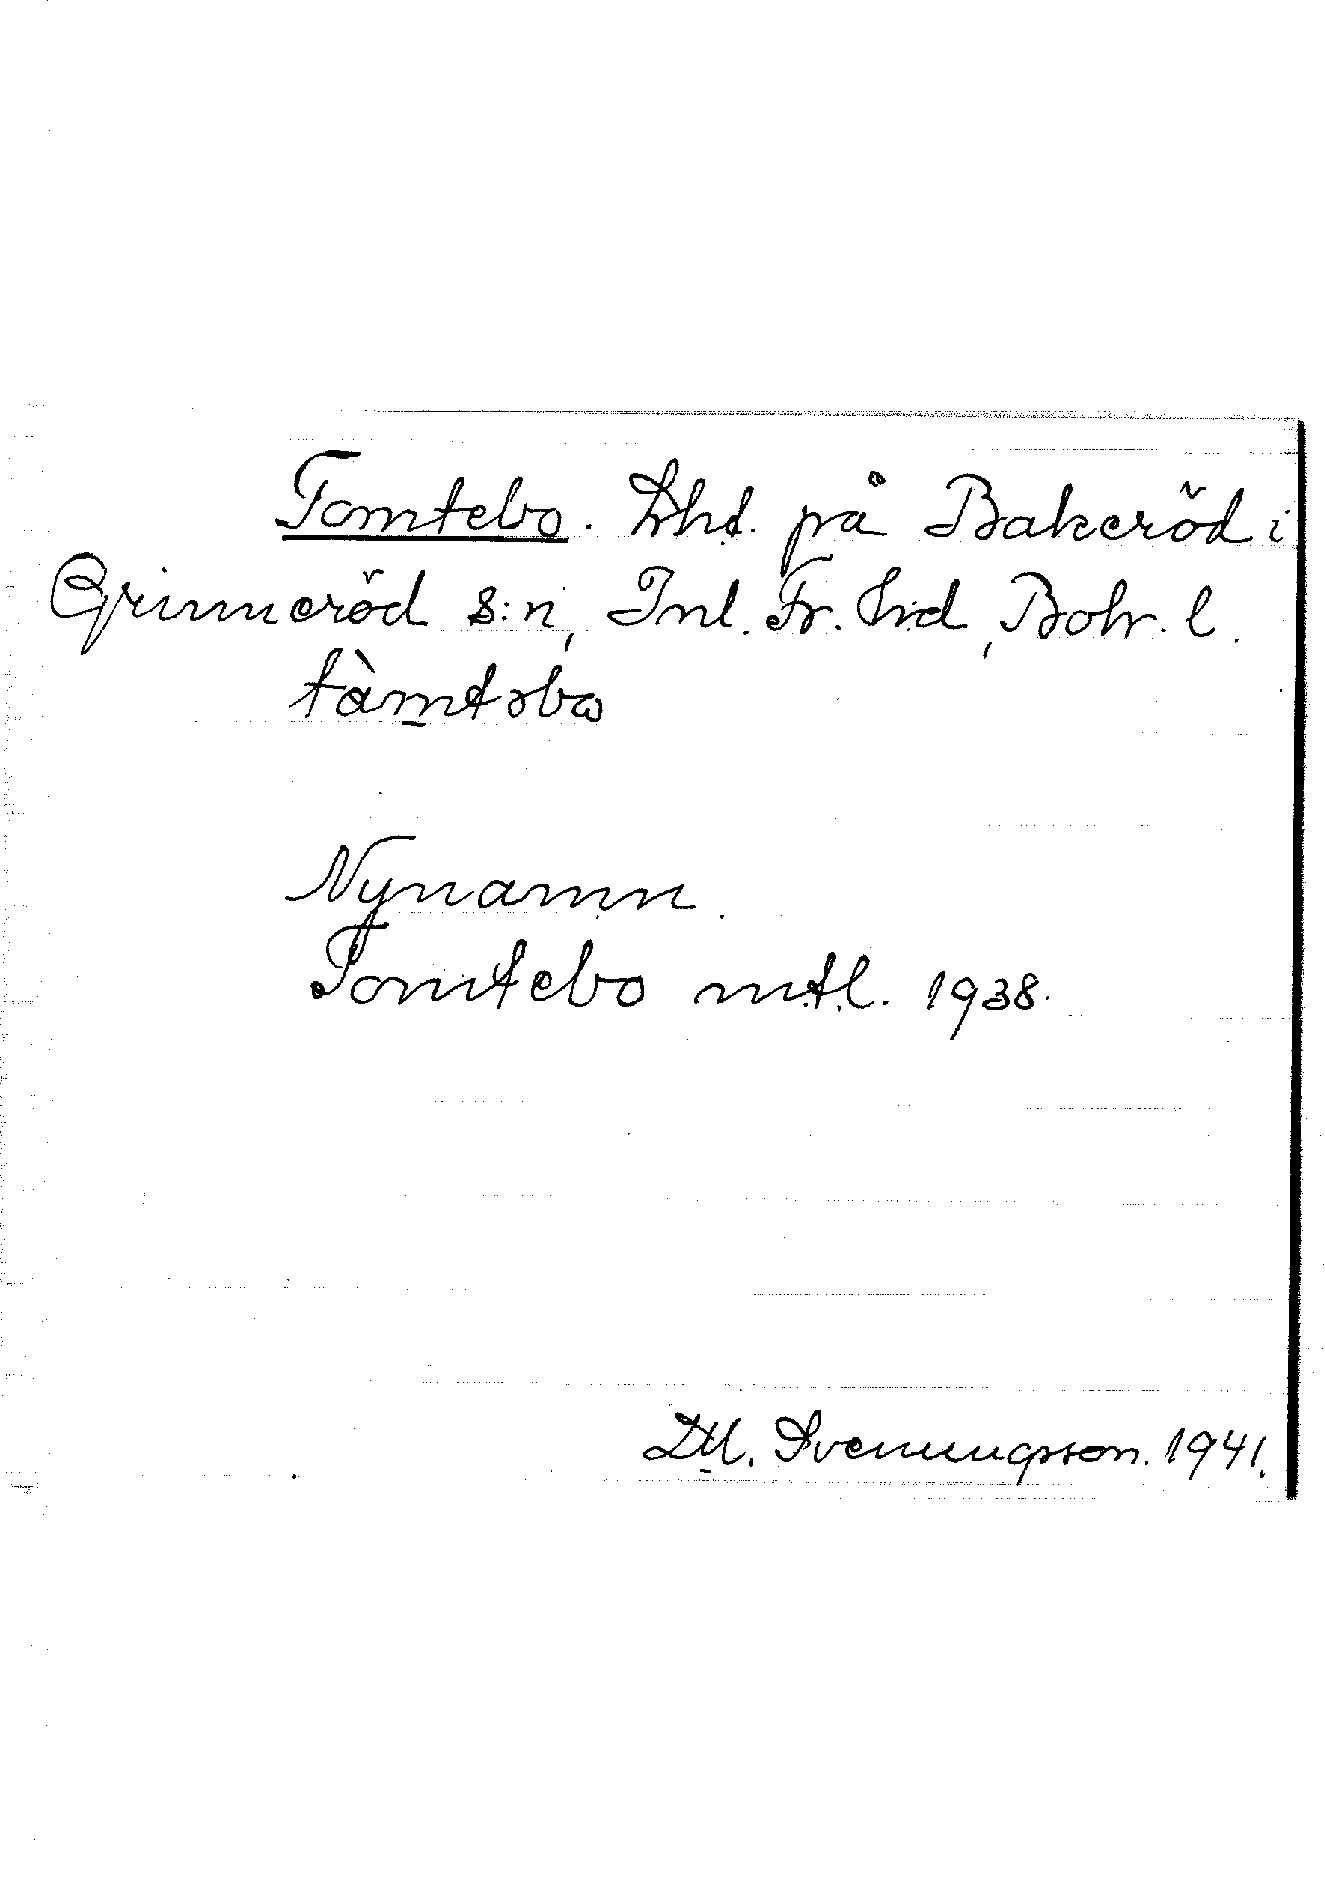 Tomtebo. Lhd. på Bakeröd i
Grinneröd s:n, Inl. Fr. hd, Boh. l.
tàmtəbω
Nynamn.
Tomtebo mtl. 1938.
D.H. Svenungsson. 1941.